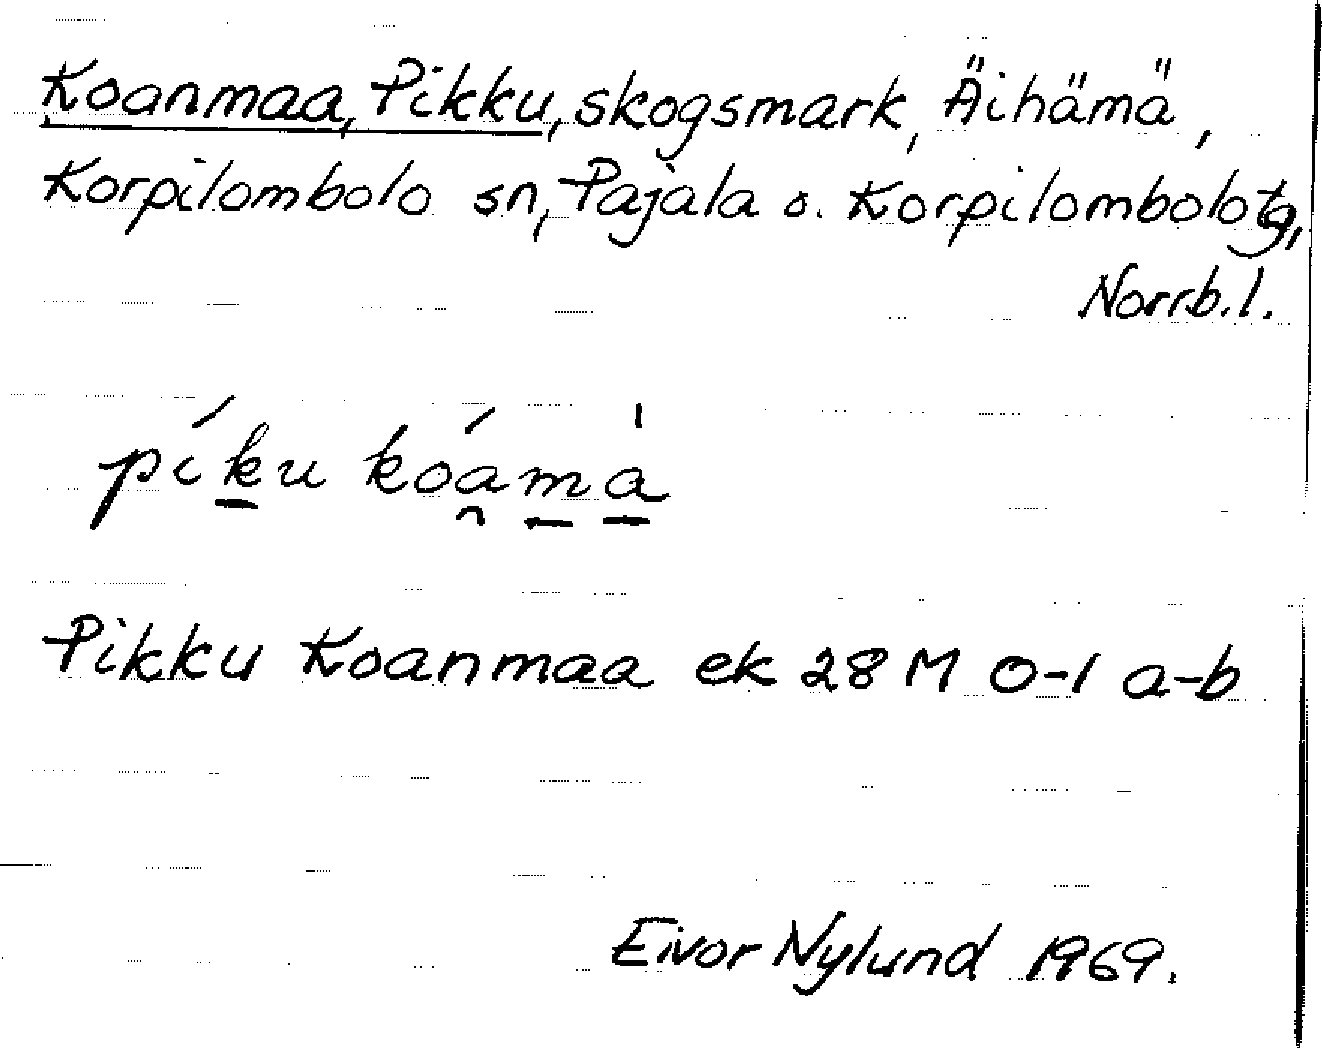 Koanmaa, Pikku, skogsmark, Äihämä,
Korpilombolo sn, Pajala o. Korpilombolo tg,
Norrb.l.
píḵu kóa̯m̱a̱̍
Pikku Koanmaa ek 28 M 0-1 a-b
Eivor Nylund 1969.